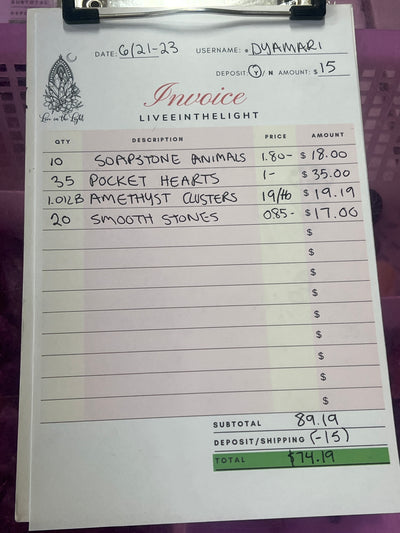 DATE: 6/21-23 USERNAME: •DYAMARI
DEPOSIT: Y / N AMOUNT: $ 15
Live in the Light
Invoice
LIVEEINTHELIGHT
QTY DESCRIPTION PRICE AMOUNT
10 SOAPSTONE ANIMALS 1.80- $ 18.00
35 POCKET HEARTS 1- $ 35.00
1.01LB AMETHYST CLUSTERS 19/lb $ 19.19
20 SMOOTH STONES 085- $ 17.00
$
$
$
$
$
$
$
$
$
SUBTOTAL 89.19
DEPOSIT/SHIPPING (-15)
TOTAL $74.19